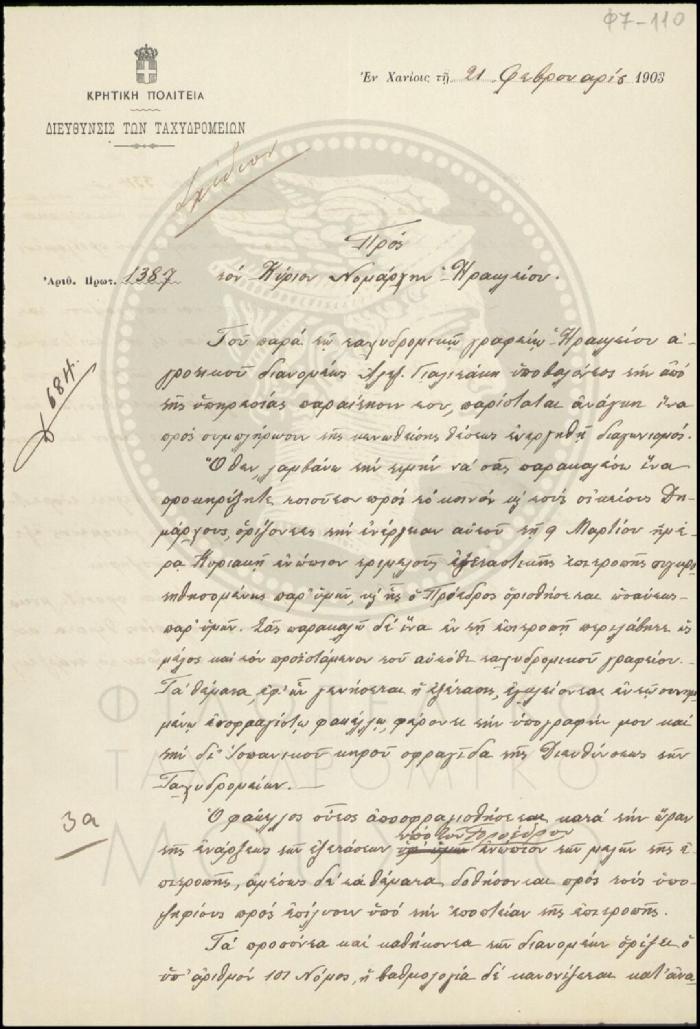 Φ7-110
Ἐν Χανίοις τῇ 21 Φεβρουαρίου 1903
ΚΡΗΤΙΚΗ ΠΟΛΙΤΕΙΑ
ΔΙΕΥΘΥΝΣΙΣ ΤΩΝ ΤΑΧΥΔΡΟΜΕΙΩΝ
Σχέδιον
Πρὸς
Ἀριθ. Πρωτ. 1387 τὸν Κύριον Νομάρχην Ἡρακλείου.
Τοῦ παρὰ τῷ ταχυδρομικῷ γραφείῳ Ἡρακλείου ἀ-
γροτικοῦ διανομέως Ἀλεξ. Γιαλιτάκη ὑποβαλόντος τὴν ἀπὸ
τῆς ὑπηρεσίας παραίτησίν του, παρίσταται ἀνάγκη ἵνα
πρὸς συμπλήρωσιν τῆς κενωθείσης θέσεως ἐνεργηθῇ διαγωνισμός.
Ὅθεν λαμβάνω τὴν τιμὴν νὰ σᾶς παρακαλέσω ἵνα
προκηρύξητε τοιοῦτον πρὸς τὸ κοινὸν καὶ τοὺς οἰκείους Δη-
μάρχους, ὁρίζοντες τὴν ἐνέργειαν αὐτοῦ τῇ 9 Μαρτίου ἡμέ-
ρᾳ Κυριακῇ ἐνώπιον τριμελοῦς ἐξεταστικῆς ἐπιτροπῆς συγκρο-
τηθησομένης παρ' ὑμῶν, καὶ ἧς ὁ Πρόεδρος ὁρισθήσεται ὡσαύτως
παρ' ὑμῶν. Σᾶς παρακαλῶ δὲ ἵνα ἐν τῇ ἐπιτροπῇ περιλάβητε ὡς
μέλος καὶ τὸν προϊστάμενον τοῦ αὐτόθι ταχυδρομικοῦ γραφείου.
Τὰ θέματα, ἐφ' ὧν γενήσεται ἡ ἐξέτασις, ἐγκλείονται ἐν τῷ συνημ-
μένῳ ἐσφραγισμένῳ φακέλλῳ, φέροντι τὴν ὑπογραφήν μου καὶ
τὴν δι' Ἱσπανικοῦ κηροῦ σφραγῖδα τῆς Διευθύνσεως τῶν
Ταχυδρομείων.
Ὁ φάκελλος οὗτος ἀποσφραγισθήσεται κατὰ τὴν ὥραν
ὑπὸ τοῦ Προέδρου
τῆς ἐνάρξεως τῶν ἐξετάσεων ὑφ' ὑμῶν ἐνώπιον τῶν μελῶν τῆς ἐ-
πιτροπῆς, ἀμέσως δὲ τὰ θέματα δοθήσονται πρὸς τοὺς ὑπο-
ψηφίους πρὸς ἐπίλυσιν ὑπὸ τὴν ἐποπτείαν τῆς ἐπιτροπῆς.
Τὰ προσόντα καὶ καθήκοντα τῶν διανομέων ὁρίζει ὁ
ὑπ' ἀριθμὸν 101 Νόμος, ἡ βαθμολογία δὲ κανονίζεται κατ' ἀνα-
ΦΙΛΟΤΕΛΙΚΟ
ΤΑΧΥΔΡΟΜΙΚΟ
ΜΟΥΣΕΙΟ